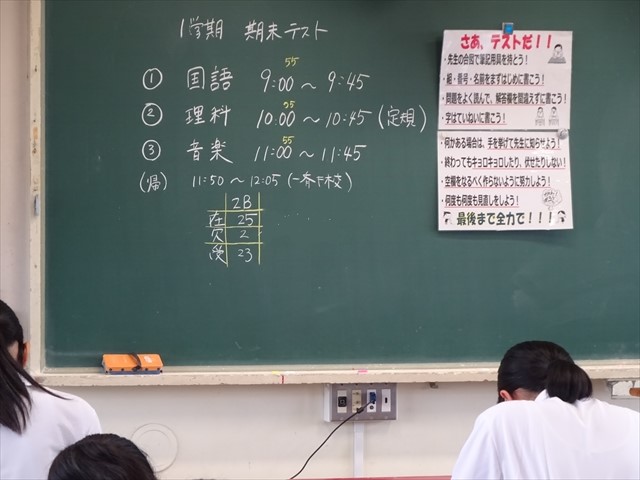 1学期 期末テスト
① 国語 9:00 ~ 9:45
55
② 理科 10:00 ~ 10:45 (定規)
55
③ 音楽 11:00 ~ 11:45
55
(帰) 11:50 ~ 12:05 (一斉下校)
2B
在 25
欠 2
受 23
さあ、テストだ!!
・先生の合図で筆記用具を持とう!
・組・番号・名前をまずはじめに書こう!
・問題をよく読んで、解答欄を間違えずに書こう!
・字はていねいに書こう!
・何かある場合は、手を挙げて先生に知らせよう!
・終わってもキョロキョロしたり、伏せたりしない!
・空欄をなるべく作らないように努力しよう!
・何度も何度も見直しをしよう!
最後まで全力で!!!